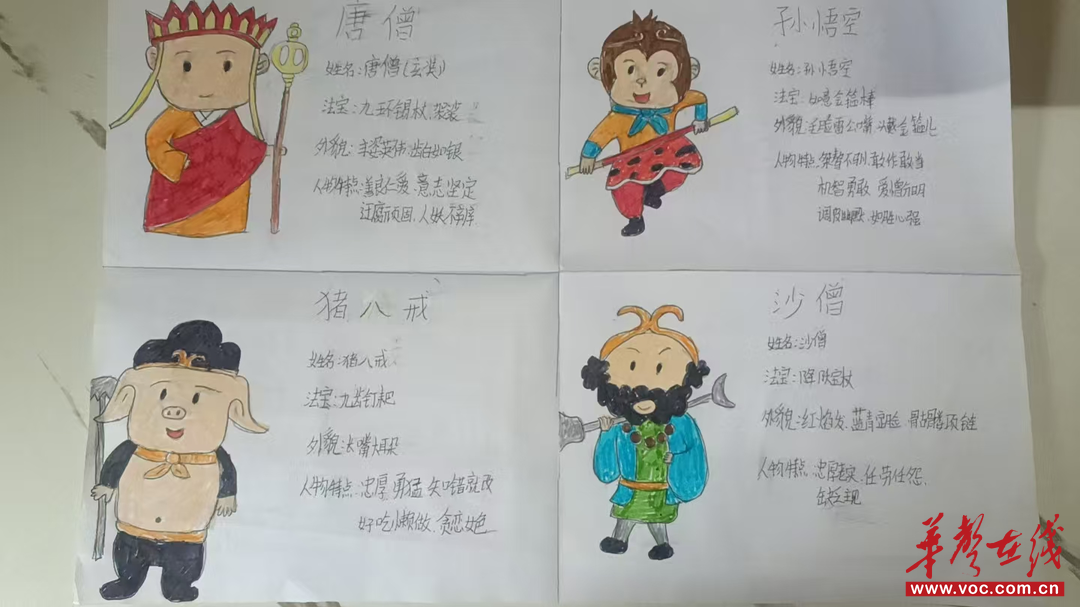 唐僧
姓名:唐僧(玄奘)
法宝:九环锡杖,袈裟
外貌:丰姿英伟 齿白如银
人物特点:善良仁爱、意志坚定
迂腐顽固、人妖不辨
孙悟空
姓名:孙悟空
法宝:如意金箍棒
外貌:毛脸雷公嘴 头戴金箍儿
人物特点:桀骜不驯 敢作敢当
机智勇敢 爱憎分明
调皮幽默、好胜心强
猪八戒
姓名:猪八戒
法宝:九齿钉耙
外貌:长嘴大耳朵
人物特点:忠厚 勇猛 知错就改
好吃懒做、贪恋女色
沙僧
姓名:沙僧
法宝:降妖宝杖
外貌:红焰发、蓝青面脸、骨髅项链
人物特点:忠厚老实、任劳任怨、
缺主见
华声在线
www.voc.com.cn